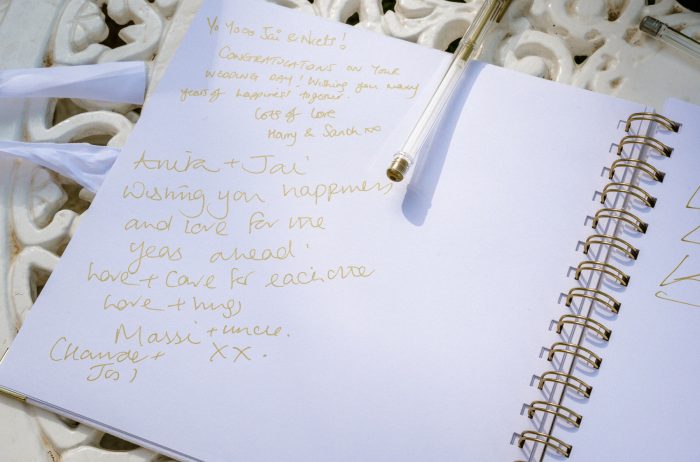 Yo Yooo Jai & Neets!
CONGRATULATIONS ON YOUR
WEDDING DAY! Wishing you many
years of happiness together.
Lots of love
Harry & Sanch xx
Anita + Jai
Wishing you happiness
and love for the
years ahead!
Love + Care for each other
Love + hugs
Massi + uncle.
XX.